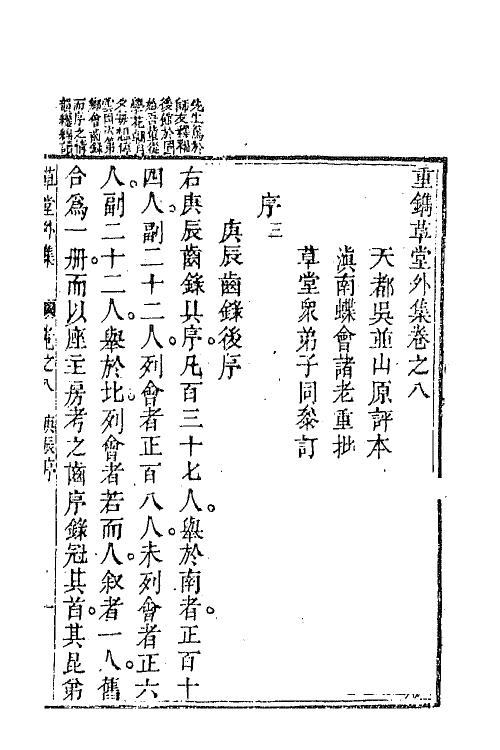 重鐫草堂外集卷之八
天都吳並山原評本
滇南蝶會諸老重批
草堂衆弟子同叅訂
序三
庚辰齒錄後序
右庚辰齒錄具序凡百三十七人。舉於南者正百十
四人副二十二人列會者正百八人未列會者正六
人副二十二人。舉於北列會者若而人叙者一人。舊
合爲一册。而以座主房考之齒序錄冠其首。其昆弟
草堂外集 卷之八 庚辰序 一
先生篤於
師友